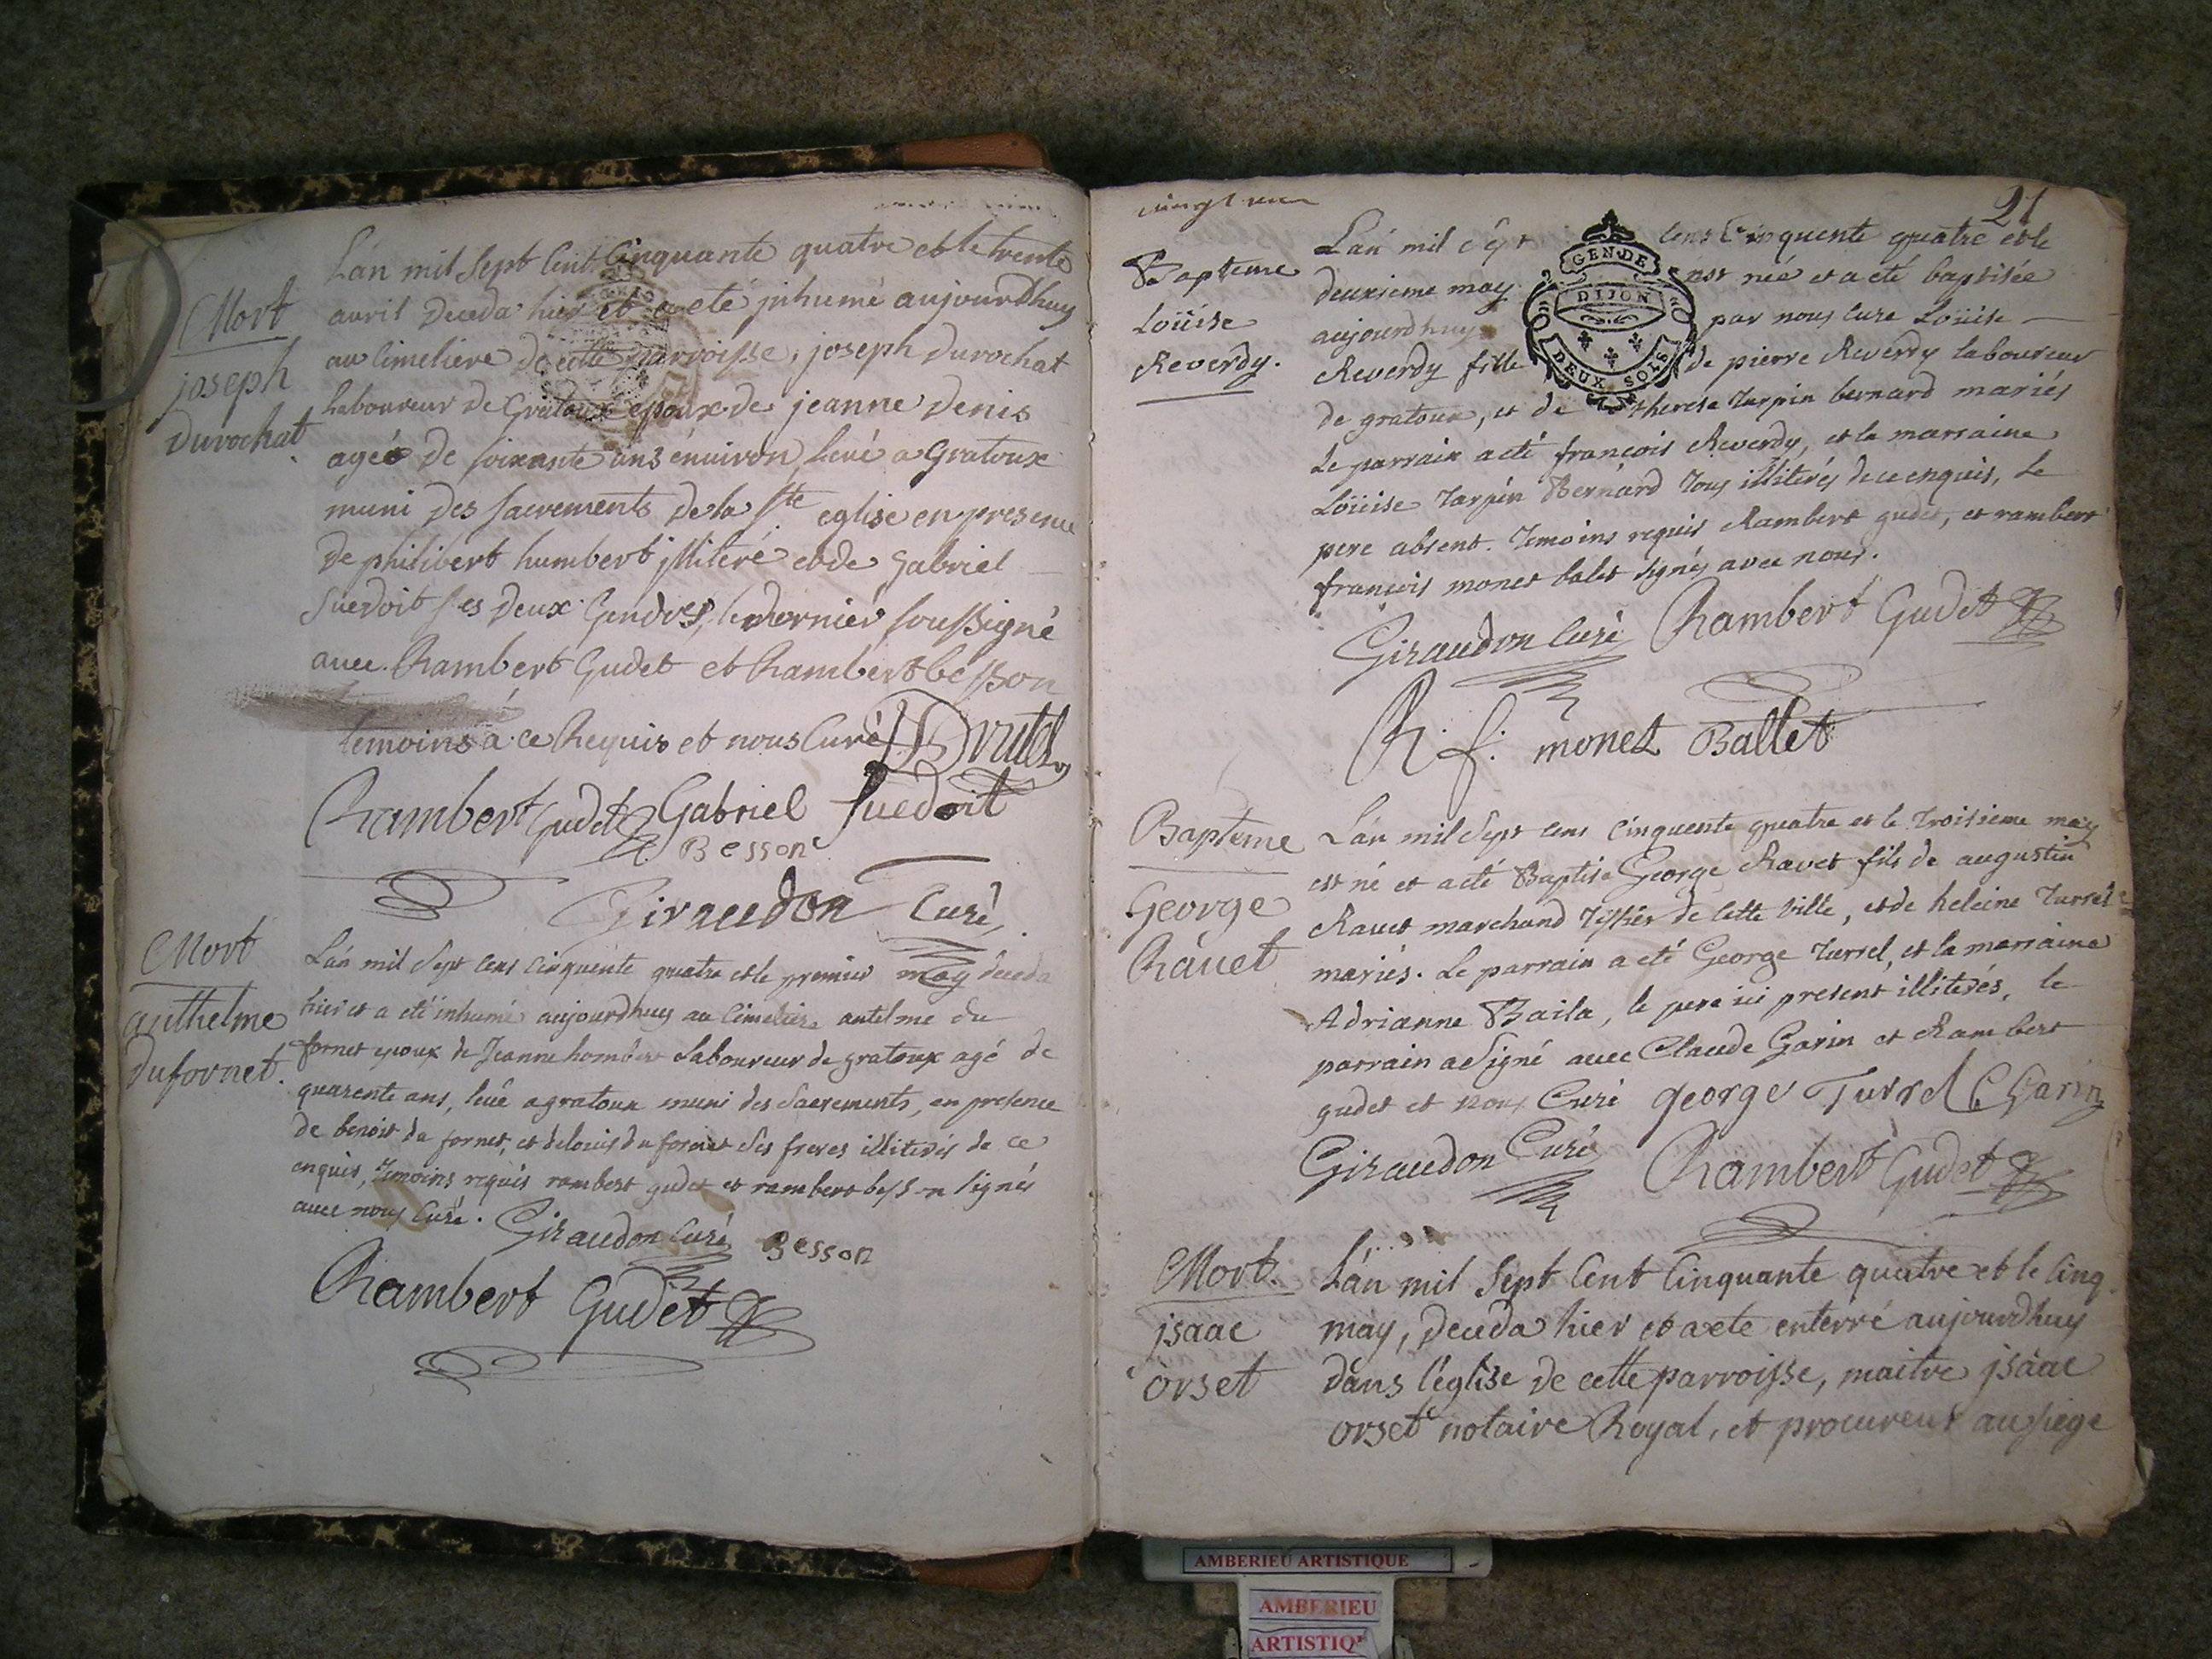 Mort
joseph
Durochat.
Lán mil sept Cent Cinquante quatre et le trente
avril deceda hier et a eté jnhumé aujourdhuy
au Cimetiere de cette parroisse, joseph Durochat
Laboureur de Gratoux epoux de jeanne Denis
ageé de soixante ans énuiron, leué a Gratoux
muni des sacrements de la ste eglise en presence
de philibert humbert jlliteré et de Gabriel
suedoit ses deux Gendres, le dernier soussigné
auec Rambert Gudet et Rambert besson
temoins a ce Requis et nous Curé
Rambert Gudet Gabriel Suedoit
Besson
Giraudon Curé
Mort
anthelme
Dufornet.
Lán mil sept cens cinquente quatre et le premier may deceda
hier et a eté inhumé aujourdhuy au Cimetiere antelme du
fornet epoux de Jeanne hombert Laboureur de gratoux agé de
quarente ans, leué a gratoux muni des Sacrements, en presence
de benoit du fornet, et de louis du fornet ses freres illiterés de ce
enquis, temoins requis rambert gudet et rambert besson signés
auec nous Curé. Giraudon Curé Besson
Rambert Gudet
vingt un
21
Bapteme
Loüise
Reverdy.
GEN. DE
DIJON
DEUX SOLS
Lan mil sept cens Cinquente quatre et le
deuxieme may est née et a eté baptisée
aujourdhuy par nous Cure Loüise
Reverdy fille de pierre Reverdy laboureur
de gratoux, et de therese Tarpin bernard mariés
Le parrain a eté françois Reverdy, et la marraine
Loüise Tarpin Bernard tous illiterés de ce enquis, Le
pere absent. Temoins requis Rambert gudet, et rambert
françois monet balet signés avec nous.
Giraudon Curé Rambert Gudet
R. f. monet Ballet
Bapteme
George
Ravet
Lán mil sept cens cinquente quatre et le troisieme may
est né et a eté Baptisé George Ravet fils de augustin
Ravet marchand Tissier de cette ville, et de heleine Turrel
mariés. Le parrain a eté George Turrel, et la marraine
Adrianne Baila, le pere ici present illiterés, le
parrain a signé avec Claude Garin et Rambert
gudet et nous Curé george Turrel C Garin
Giraudon Curé Rambert Gudet
Mort.
jsaac
orset
Lán mil sept Cent Cinquante quatre et le Cinq
may, deceda hier et a ete enterré aujourdhuy
dans l'église de cette parroisse, maitre jsaac
orset notaire Royal, et procureur au siege
AMBERIEU ARTISTIQUE
AMBERIEU
ARTISTIQ